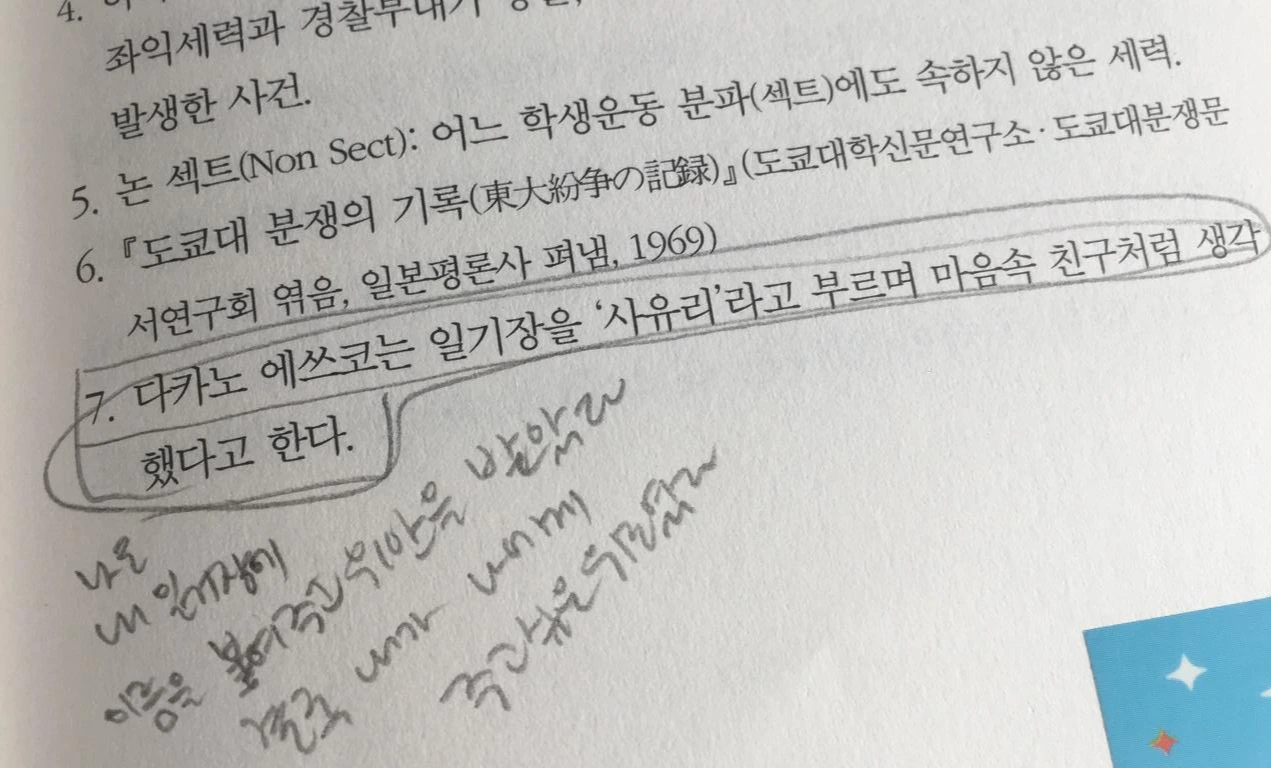 4.
좌익세력과 경찰부대가
발생한 사건.
5. 논 섹트(Non Sect): 어느 학생운동 분파(섹트)에도 속하지 않은 세력.
6. 『도쿄대 분쟁의 기록(東大紛争の記録)』(도쿄대학신문연구소·도쿄대분쟁문
서연구회 엮음, 일본평론사 펴냄, 1969)
7. 다카노 에쓰코는 일기장을 ‘사유리’라고 부르며 마음속 친구처럼 생각
했다고 한다.
나는
내 일기장에
이름을 붙여주고 위안을 받았고
결국 내가 나에게
주고 싶은